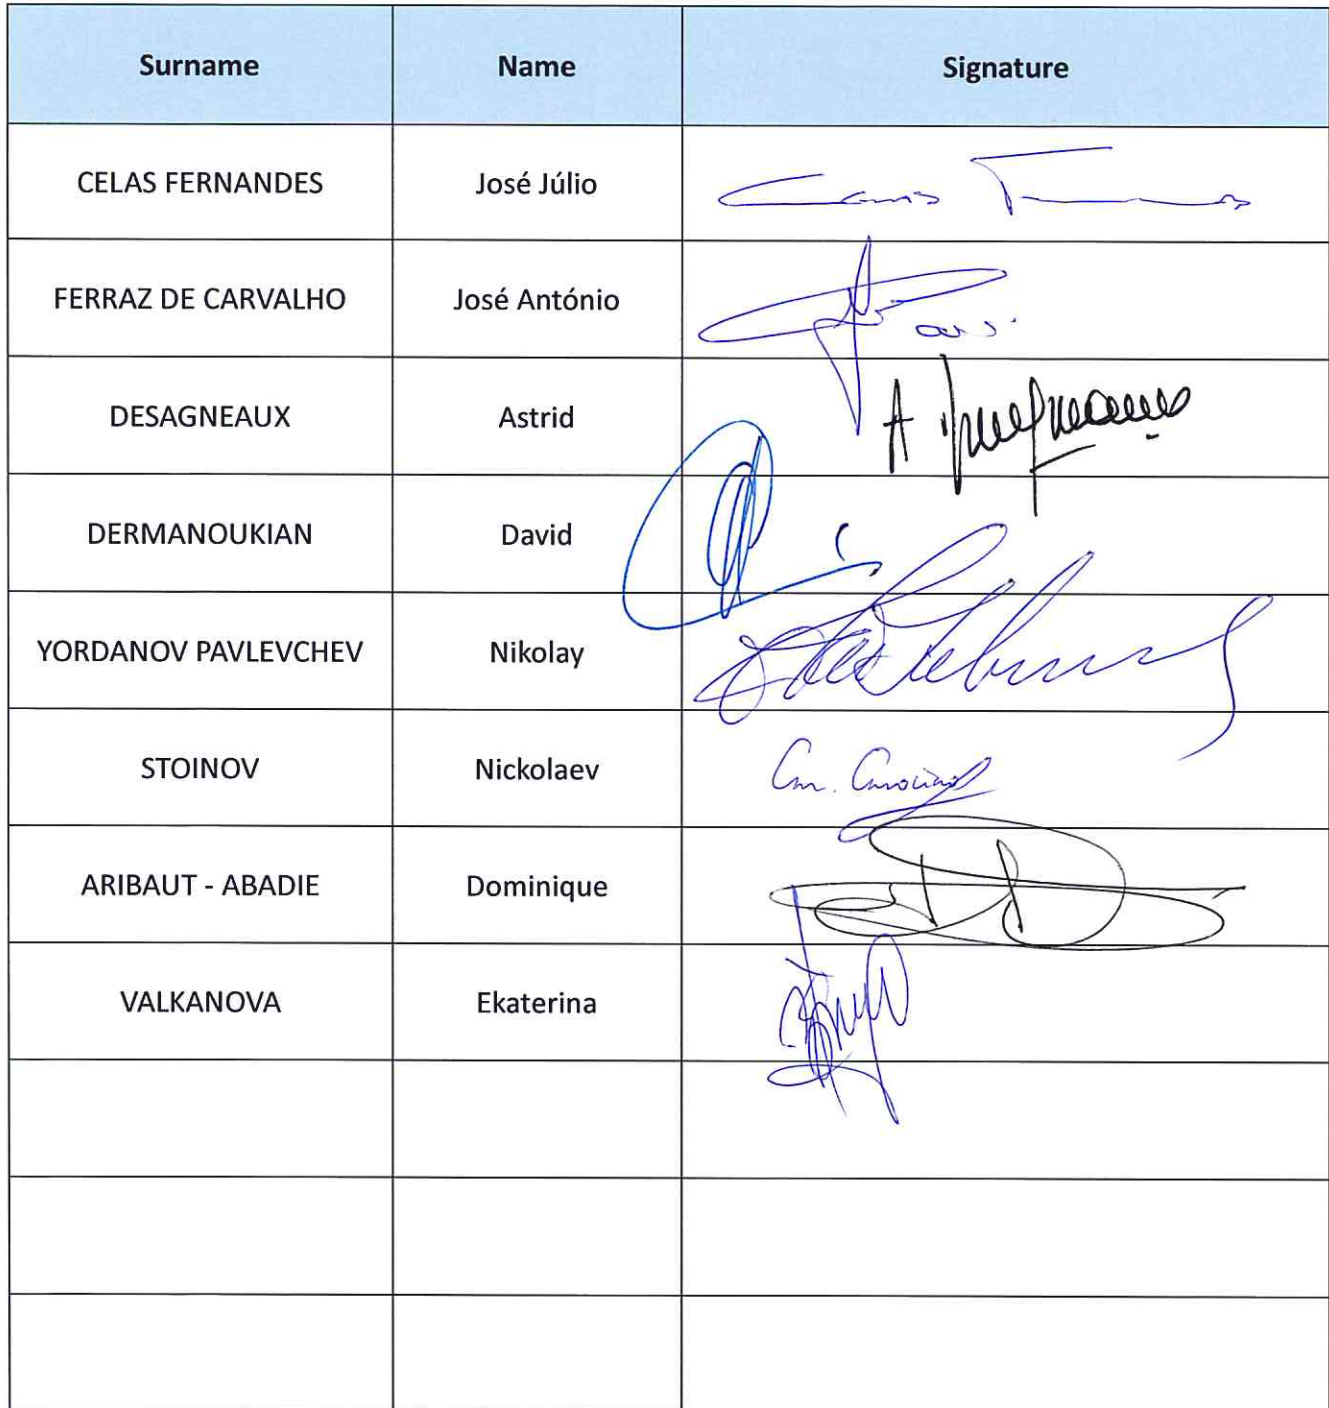 Surname Name Signature
CELAS FERNANDES José Júlio
FERRAZ DE CARVALHO José António
DESAGNEAUX Astrid
DERMANOUKIAN David
YORDANOV PAVLEVCHEV Nikolay
STOINOV Nickolaev
ARIBAUT - ABADIE Dominique
VALKANOVA Ekaterina